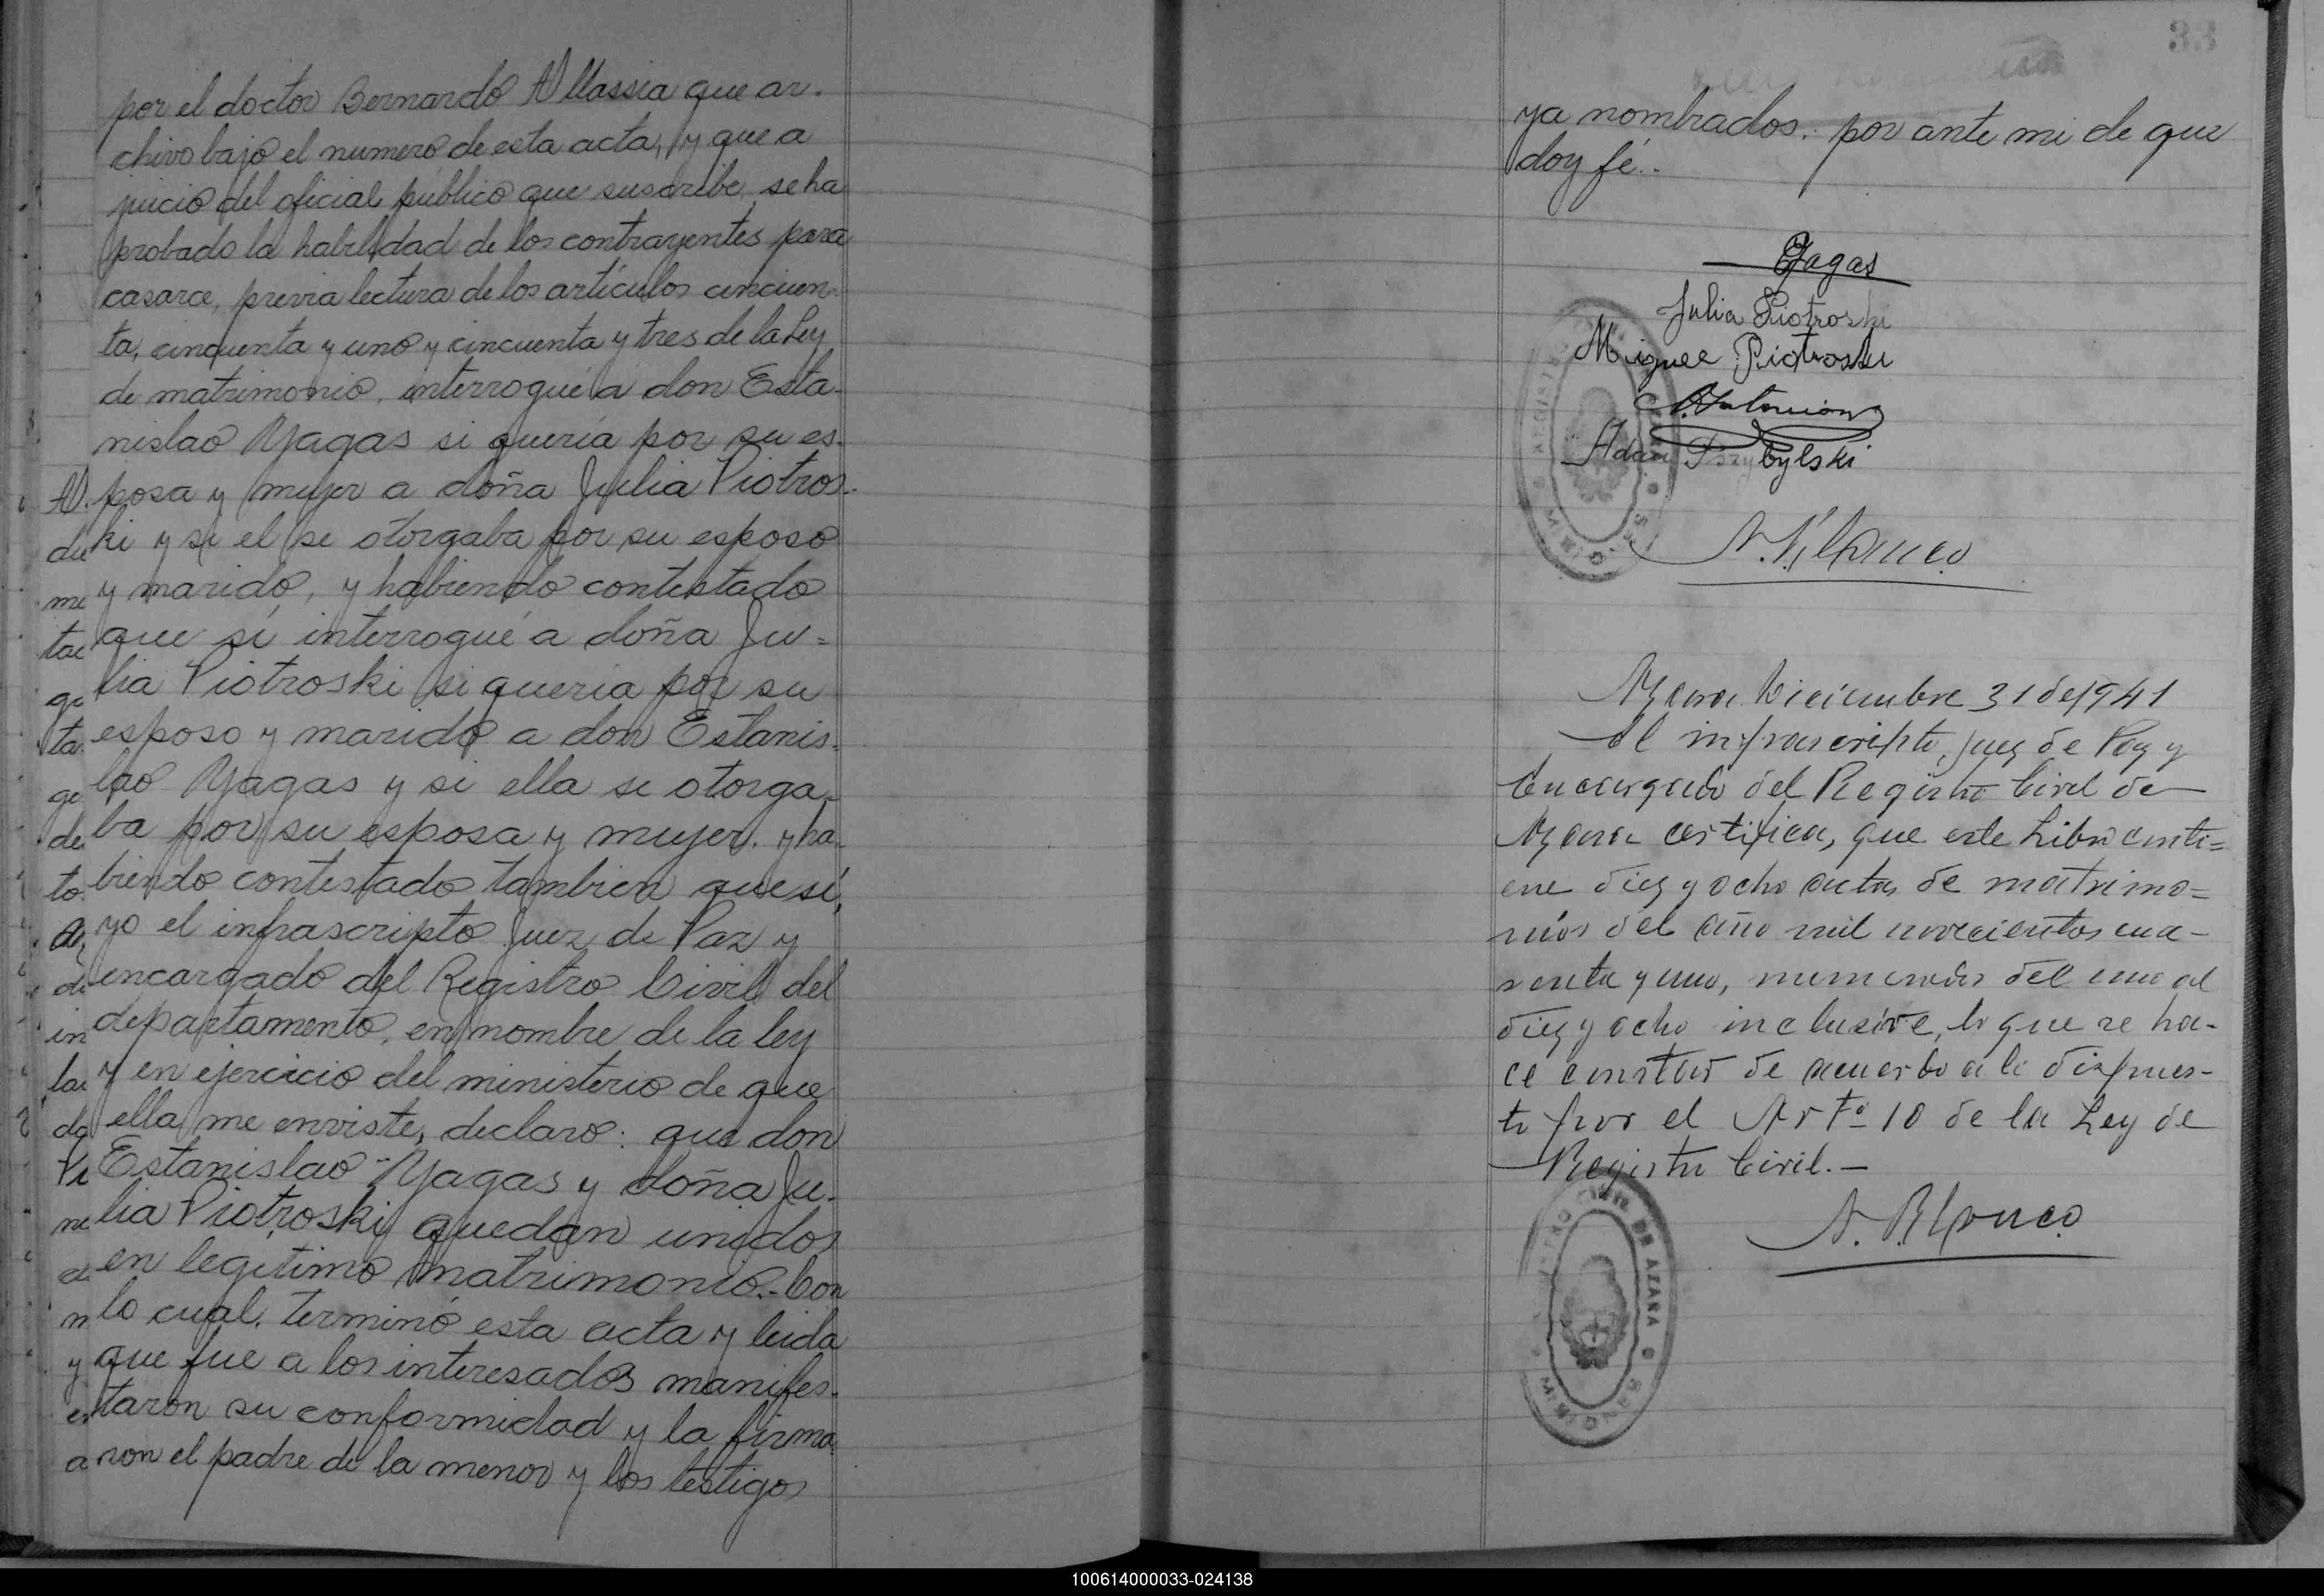 por el doctor Bernardo A Massia que ar-
chivo bajo el numero de esta acta, y que a
juicio del oficial público que suscribe, se ha
probado la habilidad de los contrayentes para
casarce, previa lectura de los artículos cincuen-
ta, cincuenta y uno y cincuenta y tres de la Ley
de matrimonio, interrogué a don Esta-
nislao Yagas si quería por su es-
posa y mujer a doña Julia Piotros-
ki y si el se otorgaba por su esposo
y marido, y habiendo contestado
que sí interrogué a doña Ju=
lia Piotroski si quería por su
esposo y marido a don Estanis-
lao Yagas y si ella se otorga-
ba por su esposa y mujer, y ha-
biendo contestado tambien que sí,
yo el infrascripto Juez de Paz y
encargado del Registro Civil del
departamento, en nombre de la ley
y en ejercicio del ministerio de que
ella me enviste, declaro: que don
Estanislao Yagas y doña Ju-
lia Piotroski quedan unidos
en legitimo matrimonio.- Con
lo cual, terminó esta acta y leida
que fue a los interesados manifes-
taron su conformidad y la firma-
ron el padre de la menor y los testigos
33
ya nombrados. por ante mi de que
doy fé..
Yagas
Julia Piotroski
Miguel Piotroski
Adan Przybylski
A. Blanco
Azara Diciembre 31 de 1941
El infrascripto, Juez de Paz y
Encargado del Registro Civil de
Azara certifica, que este Libro conti=
ene diez y ocho actas de matrimo=
nios del año mil novecientos cua-
renta y uno, numeradas del uno al
diez y ocho inclusive, lo que se ha-
ce constar de acuerdo a lo dispues-
to por el Artº 10 de la Ley de
Registro Civil.-
A. Blanco
REGISTRO CIVIL DE AZARA
MISIONES
100614000033-024138